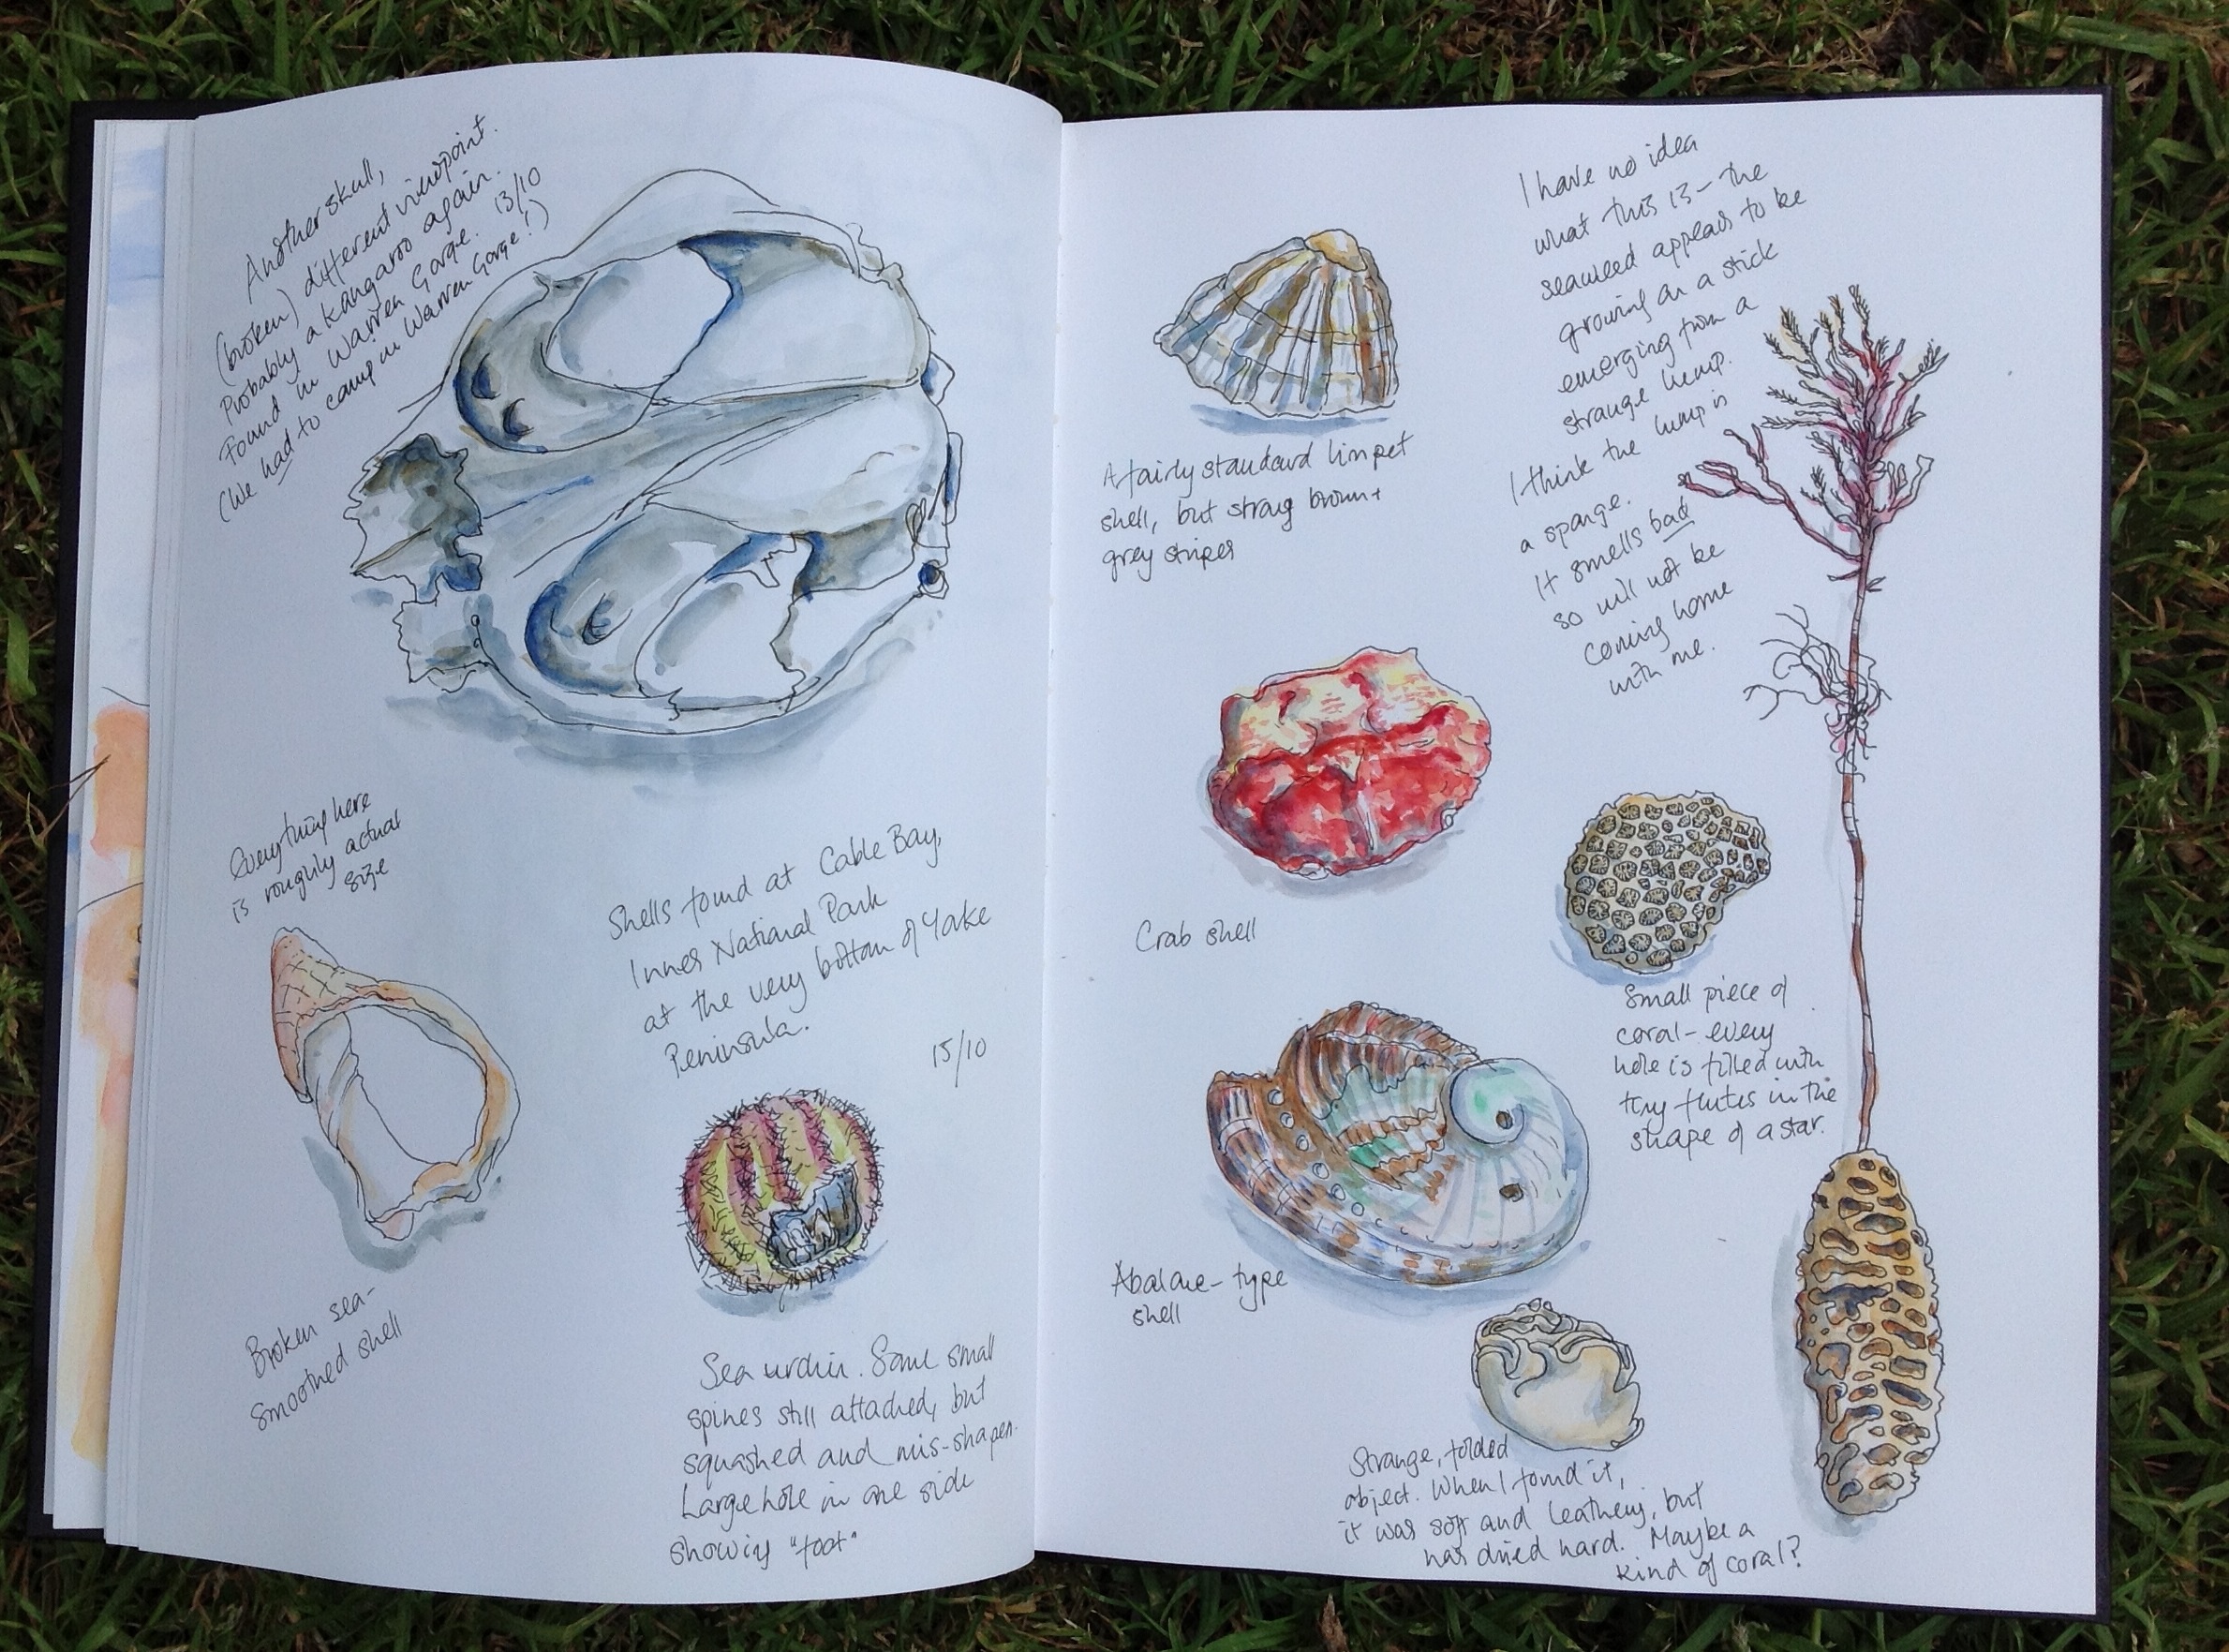 Another skull,
(broken) different viewpoint.
Probably a kangaroo again.
Found in Warren Gorge. 13/10
(We had to camp in Warren Gorge!)
Everything here
is roughly actual
size
Shells found at Cable Bay,
Innes National Park
at the very bottom of Yorke
Peninsula.
15/10
Broken sea-
smoothed shell
Sea urchin. Some small
spines still attached, but
squashed and mis-shapen.
Large hole in one side
showing "foot"
A fairly standard limpet
shell, but strong brown +
grey stripes
I have no idea
what this is - the
seaweed appears to be
growing on a stick
emerging from a
strange lump.
I think the lump is
a sponge.
It smells bad
so will not be
coming home
with me.
Crab shell
Small piece of
coral - every
hole is filled with
tiny flutes in the
shape of a star.
Abalone-type
shell
Strange, folded
object. When I found it,
it was soft and leathery, but
has dried hard. Maybe a
kind of coral?